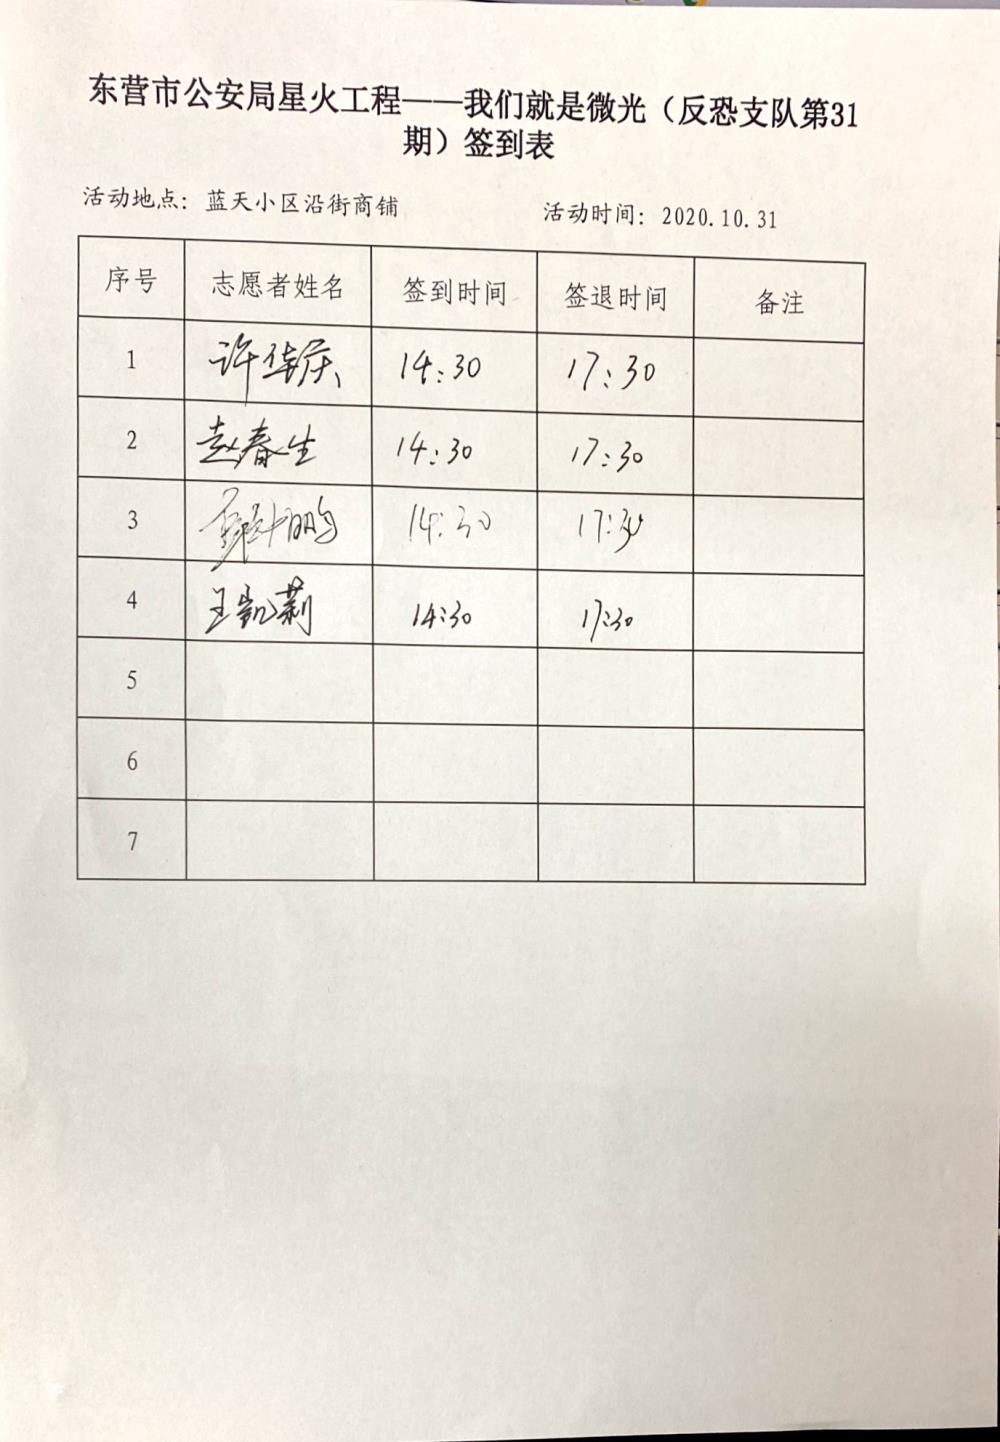 东营市公安局星火工程——我们就是微光（反恐支队第31
期）签到表
活动地点：蓝天小区沿街商铺 活动时间：2020.10.31
序号 志愿者姓名 签到时间 签退时间 备注
1 许华庆 14:30 17:30
2 赵春生 14:30 17:30
3 14:30 17:30
4 王凯莉 14:30 17:30
5
6
7